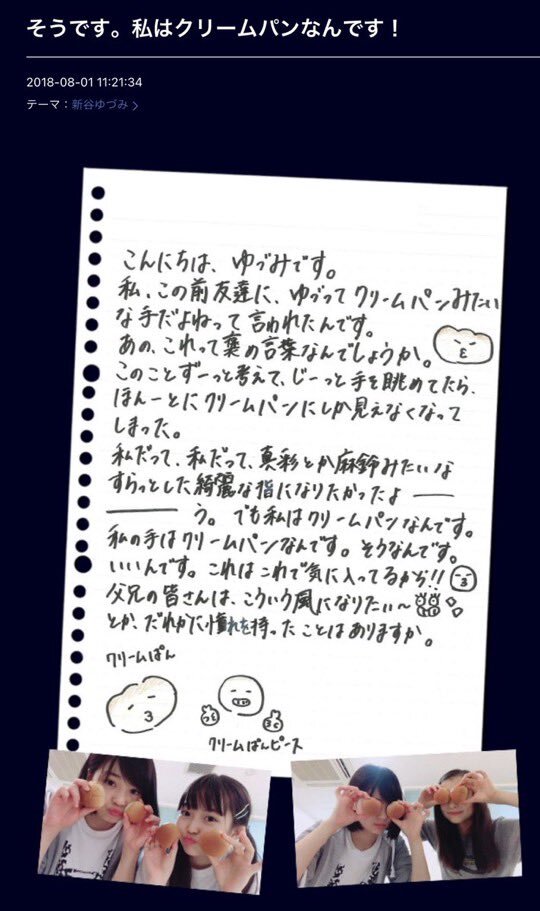 そうです。私はクリームパンなんです！
2018-08-01 11:21:34
テーマ：新谷ゆづみ >
こんにちは、ゆづみです。
私、この前友達に、ゆづってクリームパンみたい
な手だよねって言われたんです。
あの、これって褒め言葉なんでしょうか。
このことずーっと考えて、じーっと手を眺めてたら、
ほんーとにクリームパンにしか見えなくなって
しまった。
私だって、私だって、真彩とか麻鈴みたいな
すらっとした綺麗な指になりたかったよ ──
──── う。でも私はクリームパンなんです。
私の手はクリームパンなんです。そうなんです。
いいんです。これはこれで気に入ってるから!!
父兄の皆さんは、こういう風になりたい〜
とか、だれかに憧れを持ったことはありますか。
クリームぱん
クリームぱんピース